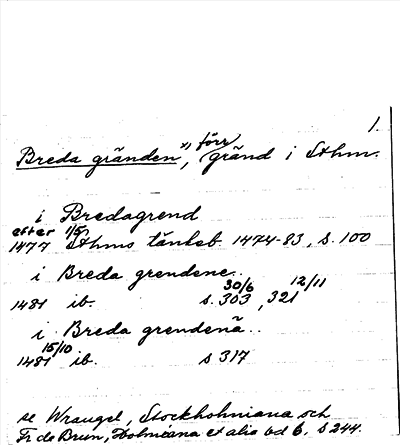 1.
Breda gränden x), förr gränd i Sthm.
i Bredagrend
efter 1/5
1477 Sthms tänkeb. 1474-83, s. 100
i Breda grendene..
30/6 12/11
1481 ib. s. 303, 321
i Breda grendenä..
15/10
1481 ib. s 317
se Wrangel, Stockholmiana och
Fr de Brun, Holmiana et alia bd 6, s 244.